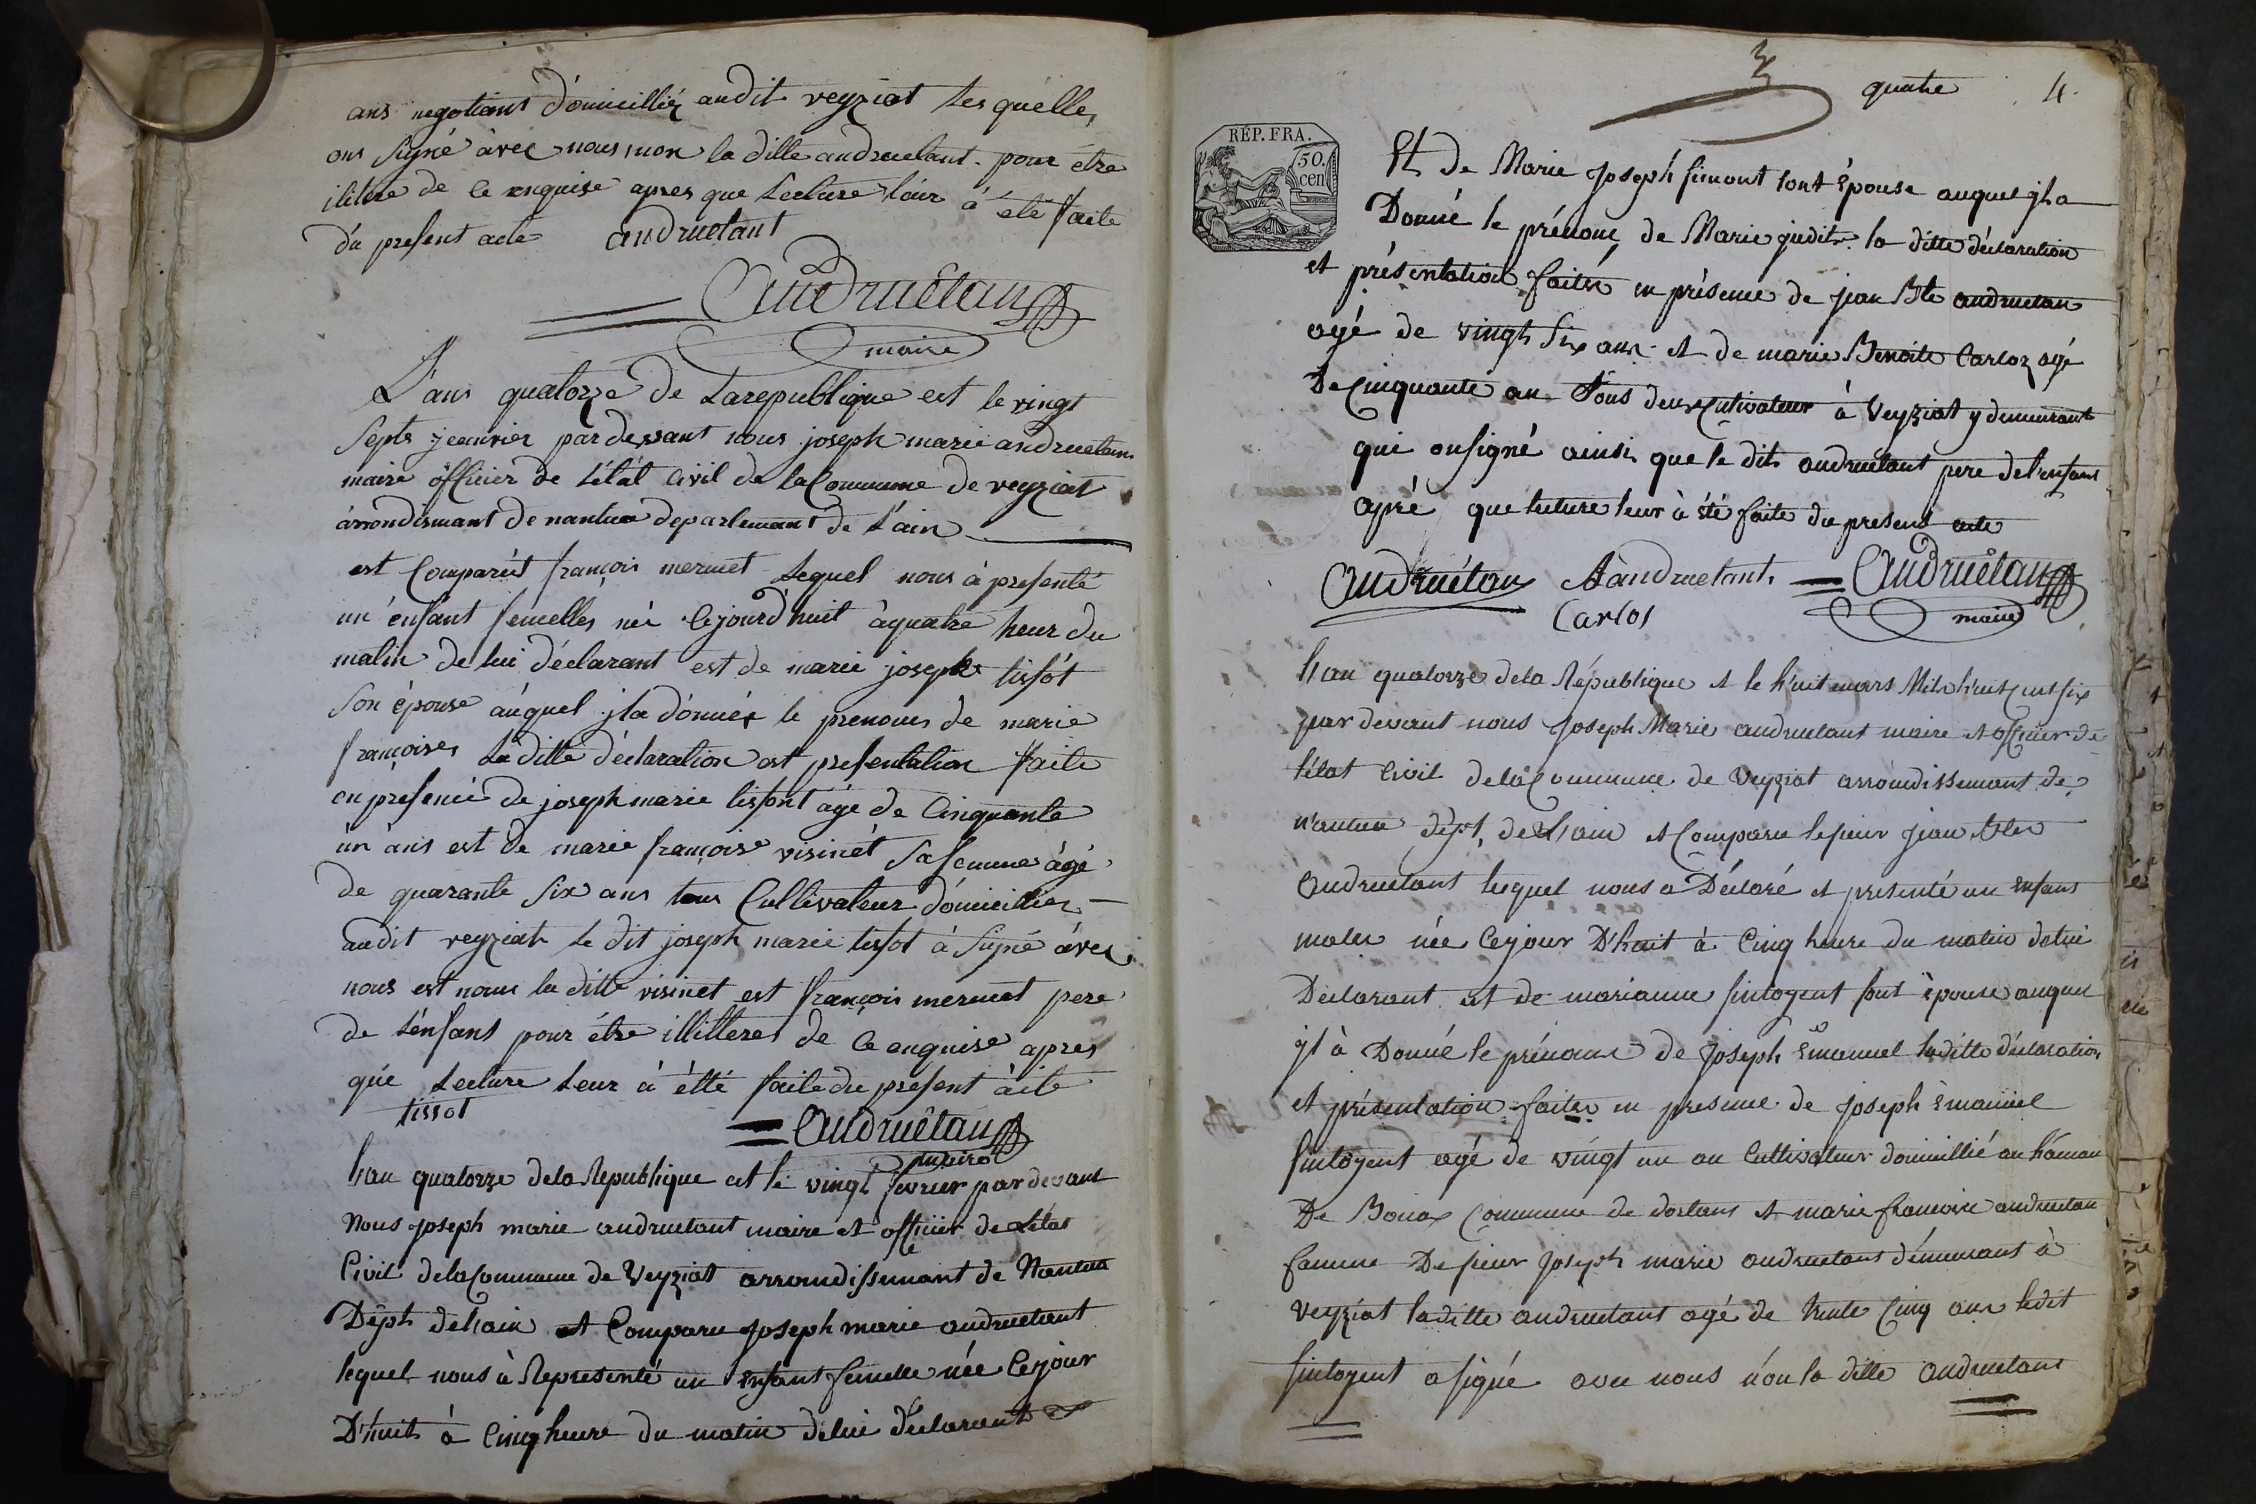 ans negotiant domicilliéz audit veyziat les quelle,
ont signé avec nous non la ditte andruetant pour être
ilitere de ce enquise apres que lecture l'eur à été faite
du present acte andruetant
Andruétan
maire
L'an quatorze de la republique est le vingt
septs jeanvier par devant nous joseph marie andruetan
maire officier de l'état civil de la Commune de veyziat
arrondismant de nantua departemant de l'ain
est Comparût françois mermet lequel nous à presenté
un enfant femelles née cejourd'huit à quatre heur du
matin de lui déclarant est de marie joseph tissot
son épouse auquel jl a donnéz le prenoms de marie
françoises la ditte déclaration est presentation faite
en presence de joseph marie tissot agé de Cinquante
un ans est de marie françoise visinét sa femme agé
de quarante six ans tous Cultivateur domicillier
audit veyziat le dit joseph marie tissot à signé avec
nous est nonn la ditte visinet est françois mermet pere
de l'enfant pour être illitteres de ce enquise apres
que lecture leur à étté faite du present acte
tissot
Andruétan
maire
L'an quatorze de la Republique et le vingt fevrier par devant
Nous joseph marie andruetant maire et officier de L'état
Civil de la Commune de Veyziat arrondissemant de Nantua
Dépt de l'ain et Comparu joseph marie andruetant
lequel nous à Representé un enfant femelle née Cejour
D'huit à Cinq heure du matin de lui déclarant
quatre 4.
RÉP. FRA.
50.
cen
Et de Marie joseph simont sont épouse auquel jl a
Donné le prénoms de Marie judit la ditte déclaration
et présentation faites en présence de jean Bte andruetan
agé de vingt six ans et de marie Benoite Carloz agé
De Cinquante an tous deux Cutivateur à Veyziat y demeurant
qui on signé ainsi que le dit andruétant pere de l'enfant
apré que lecture leur à été faite du present acte
Andruétan Aandruetant Andruétan
Carlos maire
L'an quatorze de la République et le huit mars Mil huit cent six
par devant nous Joseph Marie andruetant maire et officier de
l'état Civil de la Commune de Veyziat arrondissemant de
nantua dépt, de L'ain et Comparu le sieur jean
Andruetant lequel nous a Déclaré et presenté un enfant
males née Cejour D'huit à Cinq heure du matin de lui
Déclarant et de marianne sintoyent sont épouse auquel
jl à Donné le prénoms de Joseph Emanuel la ditte déclaration
et présentation faites en presence de joseph Emanuel
sintoyent agé de vingt un an Cultivateur domicillié au hamau
De Bonaz Commune de dortans et marie francoise andruetan
famme De sieur Joseph marie andruetant démeurant à
Veyziat la ditte andruetant agé de trente Cinq ans ledit
sintoyent a signé avec nous nón la ditte andruetant